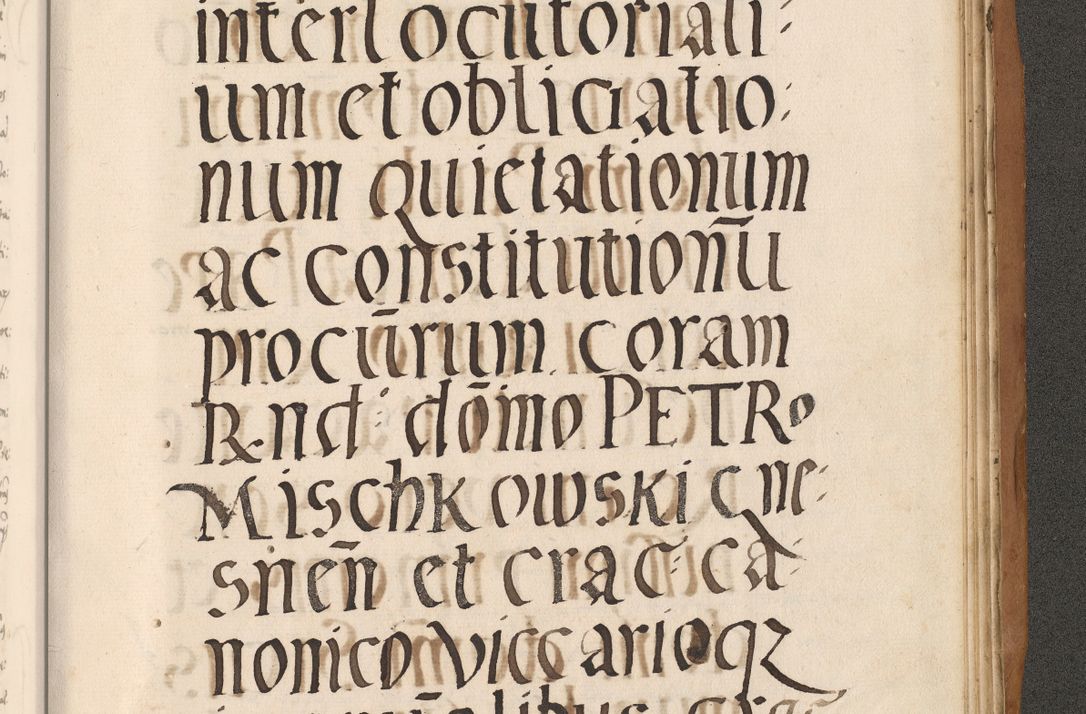 interlocutoriali:
um et obligatio:
num quietationum
ac constitutionū
procūrum coram
Rnd: dōmo PETRo
Mischkowski Gne:
snēn et crac: ca:
nonico viccarioqz